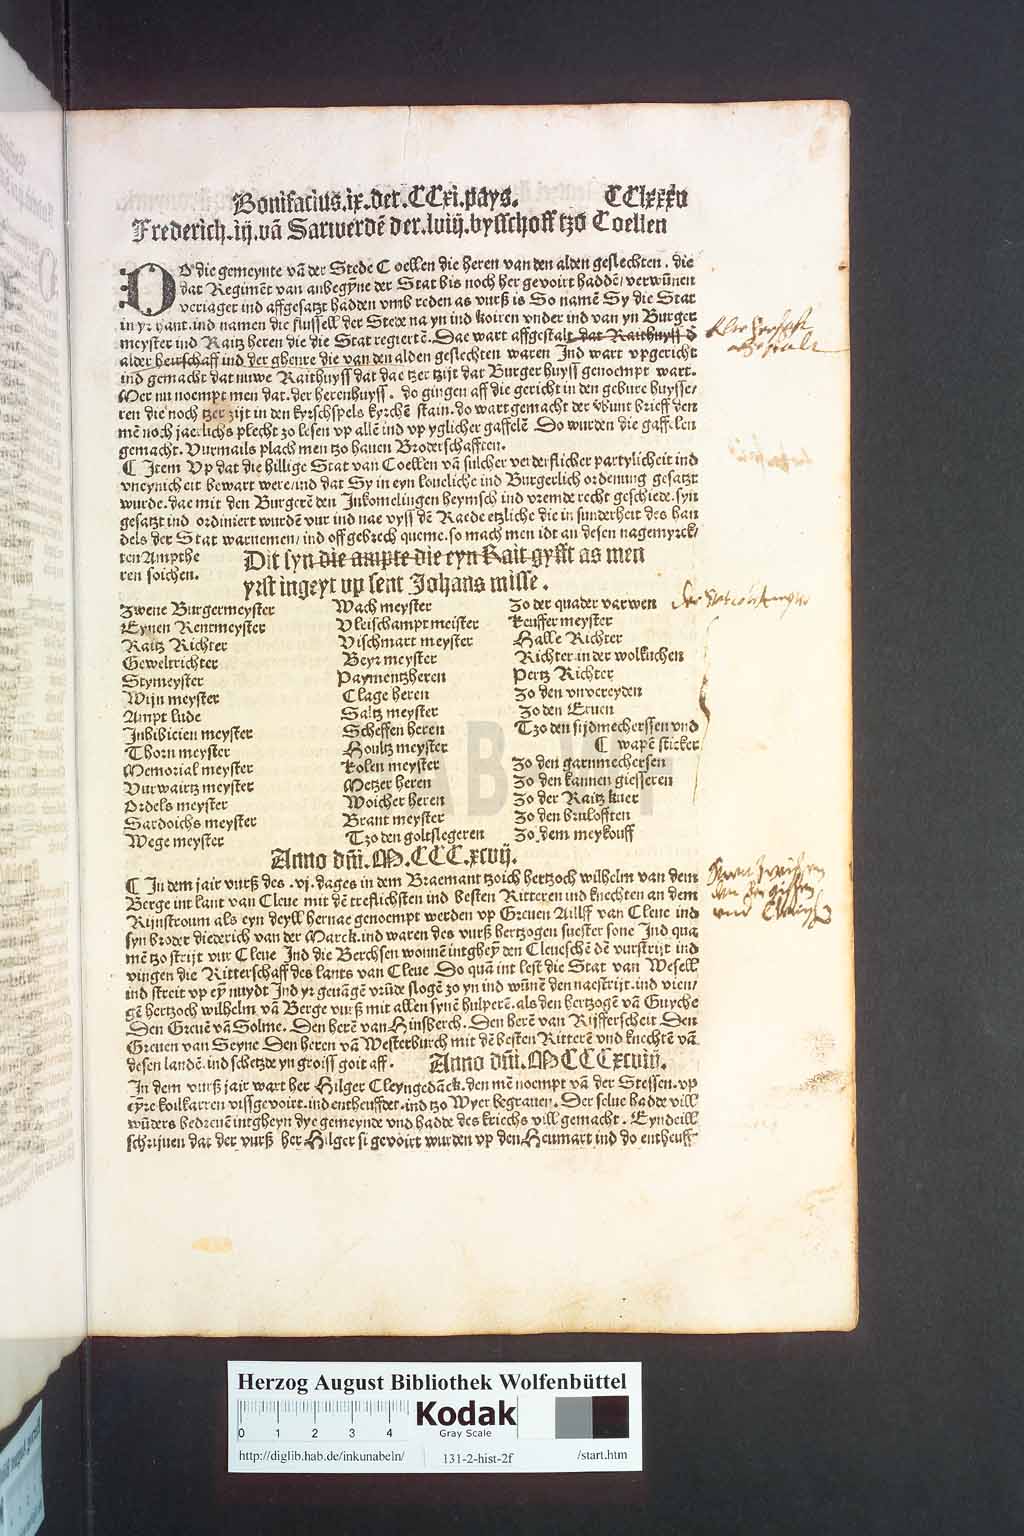 Bonifacius.ix.der.CCxi.pays. CClxxxv
Frederich.iij.vã Sarwerdẽ der.lviij.bysschoff tzo Coellen
DO die gemeynte vã der Stede Coellen die heren van den alden geslechten. die
dat Regimẽt van anbegyñe der Stat bis noch her gevoirt haddẽ/verwũnen
veriaget ind affgesatzt hadden vmb reden as vurß is So namẽ Sy die Stat
in yr hant.ind namen die slussell der Stede na yn ind koiren vnder ind van yn Burger
meyster ind Raitz heren die die Stat regiertẽ. Dae wart affgestalt dat Raithuyss d
alder herschaff ind der ghenre die van den alden geslechten waren Ind wart vpgericht
ind gemacht dat nuwe Raithuyss dat dae tzer tzijt dat Burger huyss genoempt wart.
Mer nu noempt men dat.der herenhuyss. do gingen aff die gericht in den gebure huysse/
ren die noch tzer zijt in den kyrschspels kyrchẽ stain.do wart gemacht der vbunt brieff den
mẽ noch jaerlichs plecht zo lesen vp allẽ ind vp yglicher gaffelẽ Do wurden die gaffelen
gemacht. Vurmails plach men tzo hauen Broderschafften.
C Item Vp dat die hillige Stat van Coellen vã sulcher verderflicher partylicheit ind
vneynicheit bewart were/ind dat Sy in eyn loueliche ind Burgerlich ordenung gesatzt
wurde.dae mit den Burgerẽ den Inkomelingen heymsch ind vremde recht geschiede.syn
gesatzt ind ordiniert wurdẽ vur ind nae vyss dẽ Raede etzliche die in sunderheit des han
dels der Stat warnemen/ind off gebrech queme.so mach men idt an desen nagemyrck/
ten Ampthe
ren soichen.
Dit syn die ampte die eyn Rait gyfft as men
yrst ingeyt vp sent Johans misse.
Zwene Burgermeyster
Eynen Rentmeyster
Raitz Richter
Geweltrichter
Stymeyster
Wijn meyster
Ampt lude
Inbibicien meyster
Thorn meyster
Memorial meyster
Vurwairtz meyster
Ordels meyster
Sardoichs meyster
Wege meyster
Wach meyster
Vleischampt meister
Vischmart meyster
Beyr meyster
Paymentzheren
Clage heren
Saltz meyster
Scheffen heren
Houltz meyster
Kolen meyster
Metzer heren
Woicher heren
Brant meyster
Tzo den goltslegeren
Zo der quader varwen
keuffer meyster
Halle Richter
Richter in der wolkuchen
Pertz Richter
Zo den vnvereyden
Zo den Eruen
Tzo den sijdmecherssen vnd
C wapẽ sticker
Zo den garnmechersen
Zo den kannen giesseren
Zo der Raitz kuer
Zo den brulofften
Zo dem meykouff
Anno dñi.M.CCC.xcvij.
C In dem jair vurß des.vj.dages in dem Braemant tzoich hertzoch wilhelm van dem
Berge int lant van Cleue mit dẽ treflichsten ind besten Ritteren ind knechten an dem
Rijnstroum als eyn deyll hernae genoempt werden vp Greuen Ailff van Cleue ind
syn broder diederich van der Marck.ind waren des vurß hertzogen suester sone Ind qua
mẽ tzo strijt vur Cleue Ind die Berchsen wonnẽ intgheỹ den Cleueschẽ dẽ vurstrijt ind
vingen die Ritterschaff des lants van Cleue Do quã int lest die Stat van Wesell
ind streit vp eỹ nuydt Ind yr geuãgẽ vrũde slogẽ zo yn ind wũnẽ den naestrijt.ind vien/
gẽ hertzoch wilhelm vã Berge vurß mit allen synẽ hulperẽ.als den hertzogẽ vã Guyche
Den Greuẽ vã Solme. Den herẽ van Hinsberch. Den herẽ van Rijfferscheit Den
Greuen van Seyne Den heren vã Westerburch mit dẽ besten Ritterẽ vnd knechtẽ vã
desen landẽ.ind schetzde yn groiss goit aff. Anno dñi.MCCCxcviij.
In dem vurß jair wart her Hilger Cleyngedãck.den mẽ noempt vã der Stessen.vp
eỹre koilkarren vissgevoirt.ind entheuffdet.ind tzo Wyer begrauen. Der selue hadde vill
wũders bedreuẽ intgheyn dye gemeynde vnd hadde des kriechs vill gemacht. Eyndeill
schrijuen dat der vurß her Hilger si gevoirt wurden vp den Heumart ind do entheuff
Herzog August Bibliothek Wolfenbüttel
0 1 2 3 4
Kodak
Gray Scale
http://diglib.hab.de/inkunabeln/ 131-2-hist-2f /start.htm